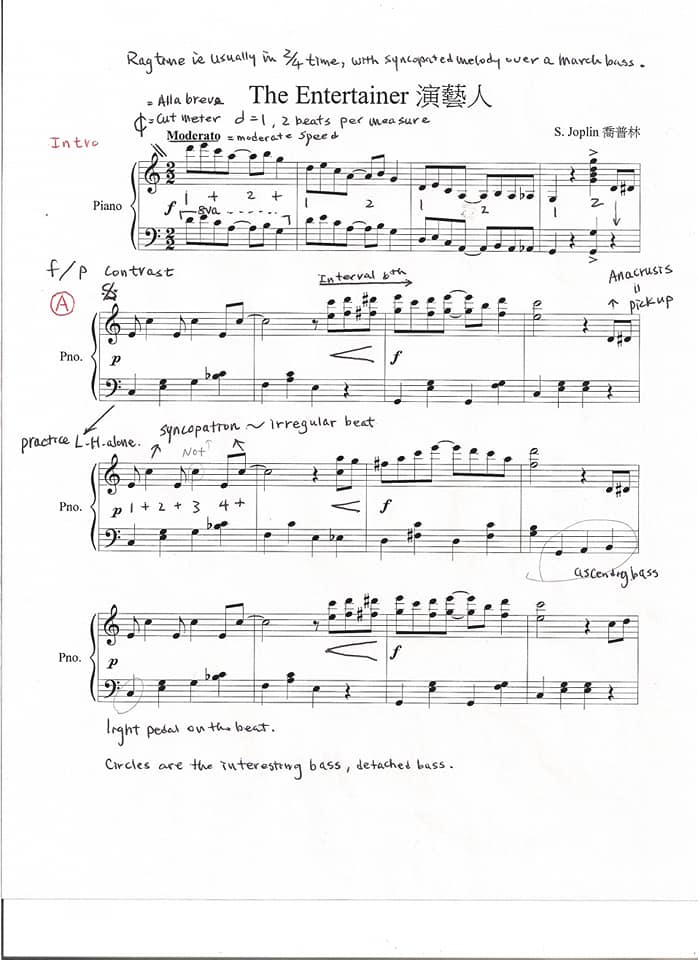 Ragtime is usually in 2/4 time, with syncopated melody over a march bass.
= Alla breve
The Entertainer 演藝人
¢= Cut meter d=1, 2 beats per measure
Intro
Moderato = moderate speed
S. Joplin 喬普林
Piano
1 + 2 + 1 2 1 2 1 2
f
8va
f/p contrast
Interval 6th
Anacrusis
=
pickup
A
Pno.
p
f
practice L-H-alone.
syncopation ~ irregular beat
Not
Pno.
p 1 + 2 + 3 4 +
f
ascending bass
Pno.
p
f
light pedal on the beat.
Circles are the interesting bass, detached bass.